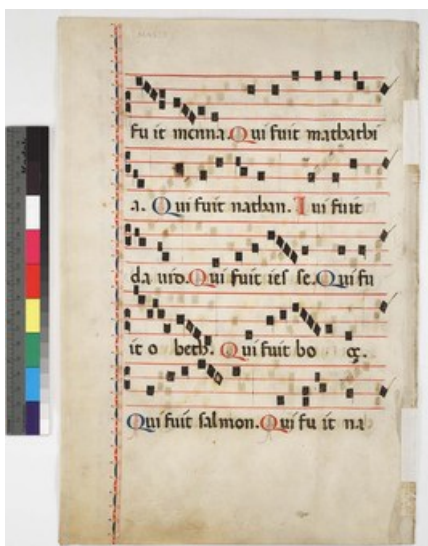 fu it menna. Qui fuit mathathi
a. Qui fuit nathan. Qui fuit
da uid. Qui fuit ies se. Qui fu
it o beth. Qui fuit bo oz.
Qui fuit salmon. Qui fu it na